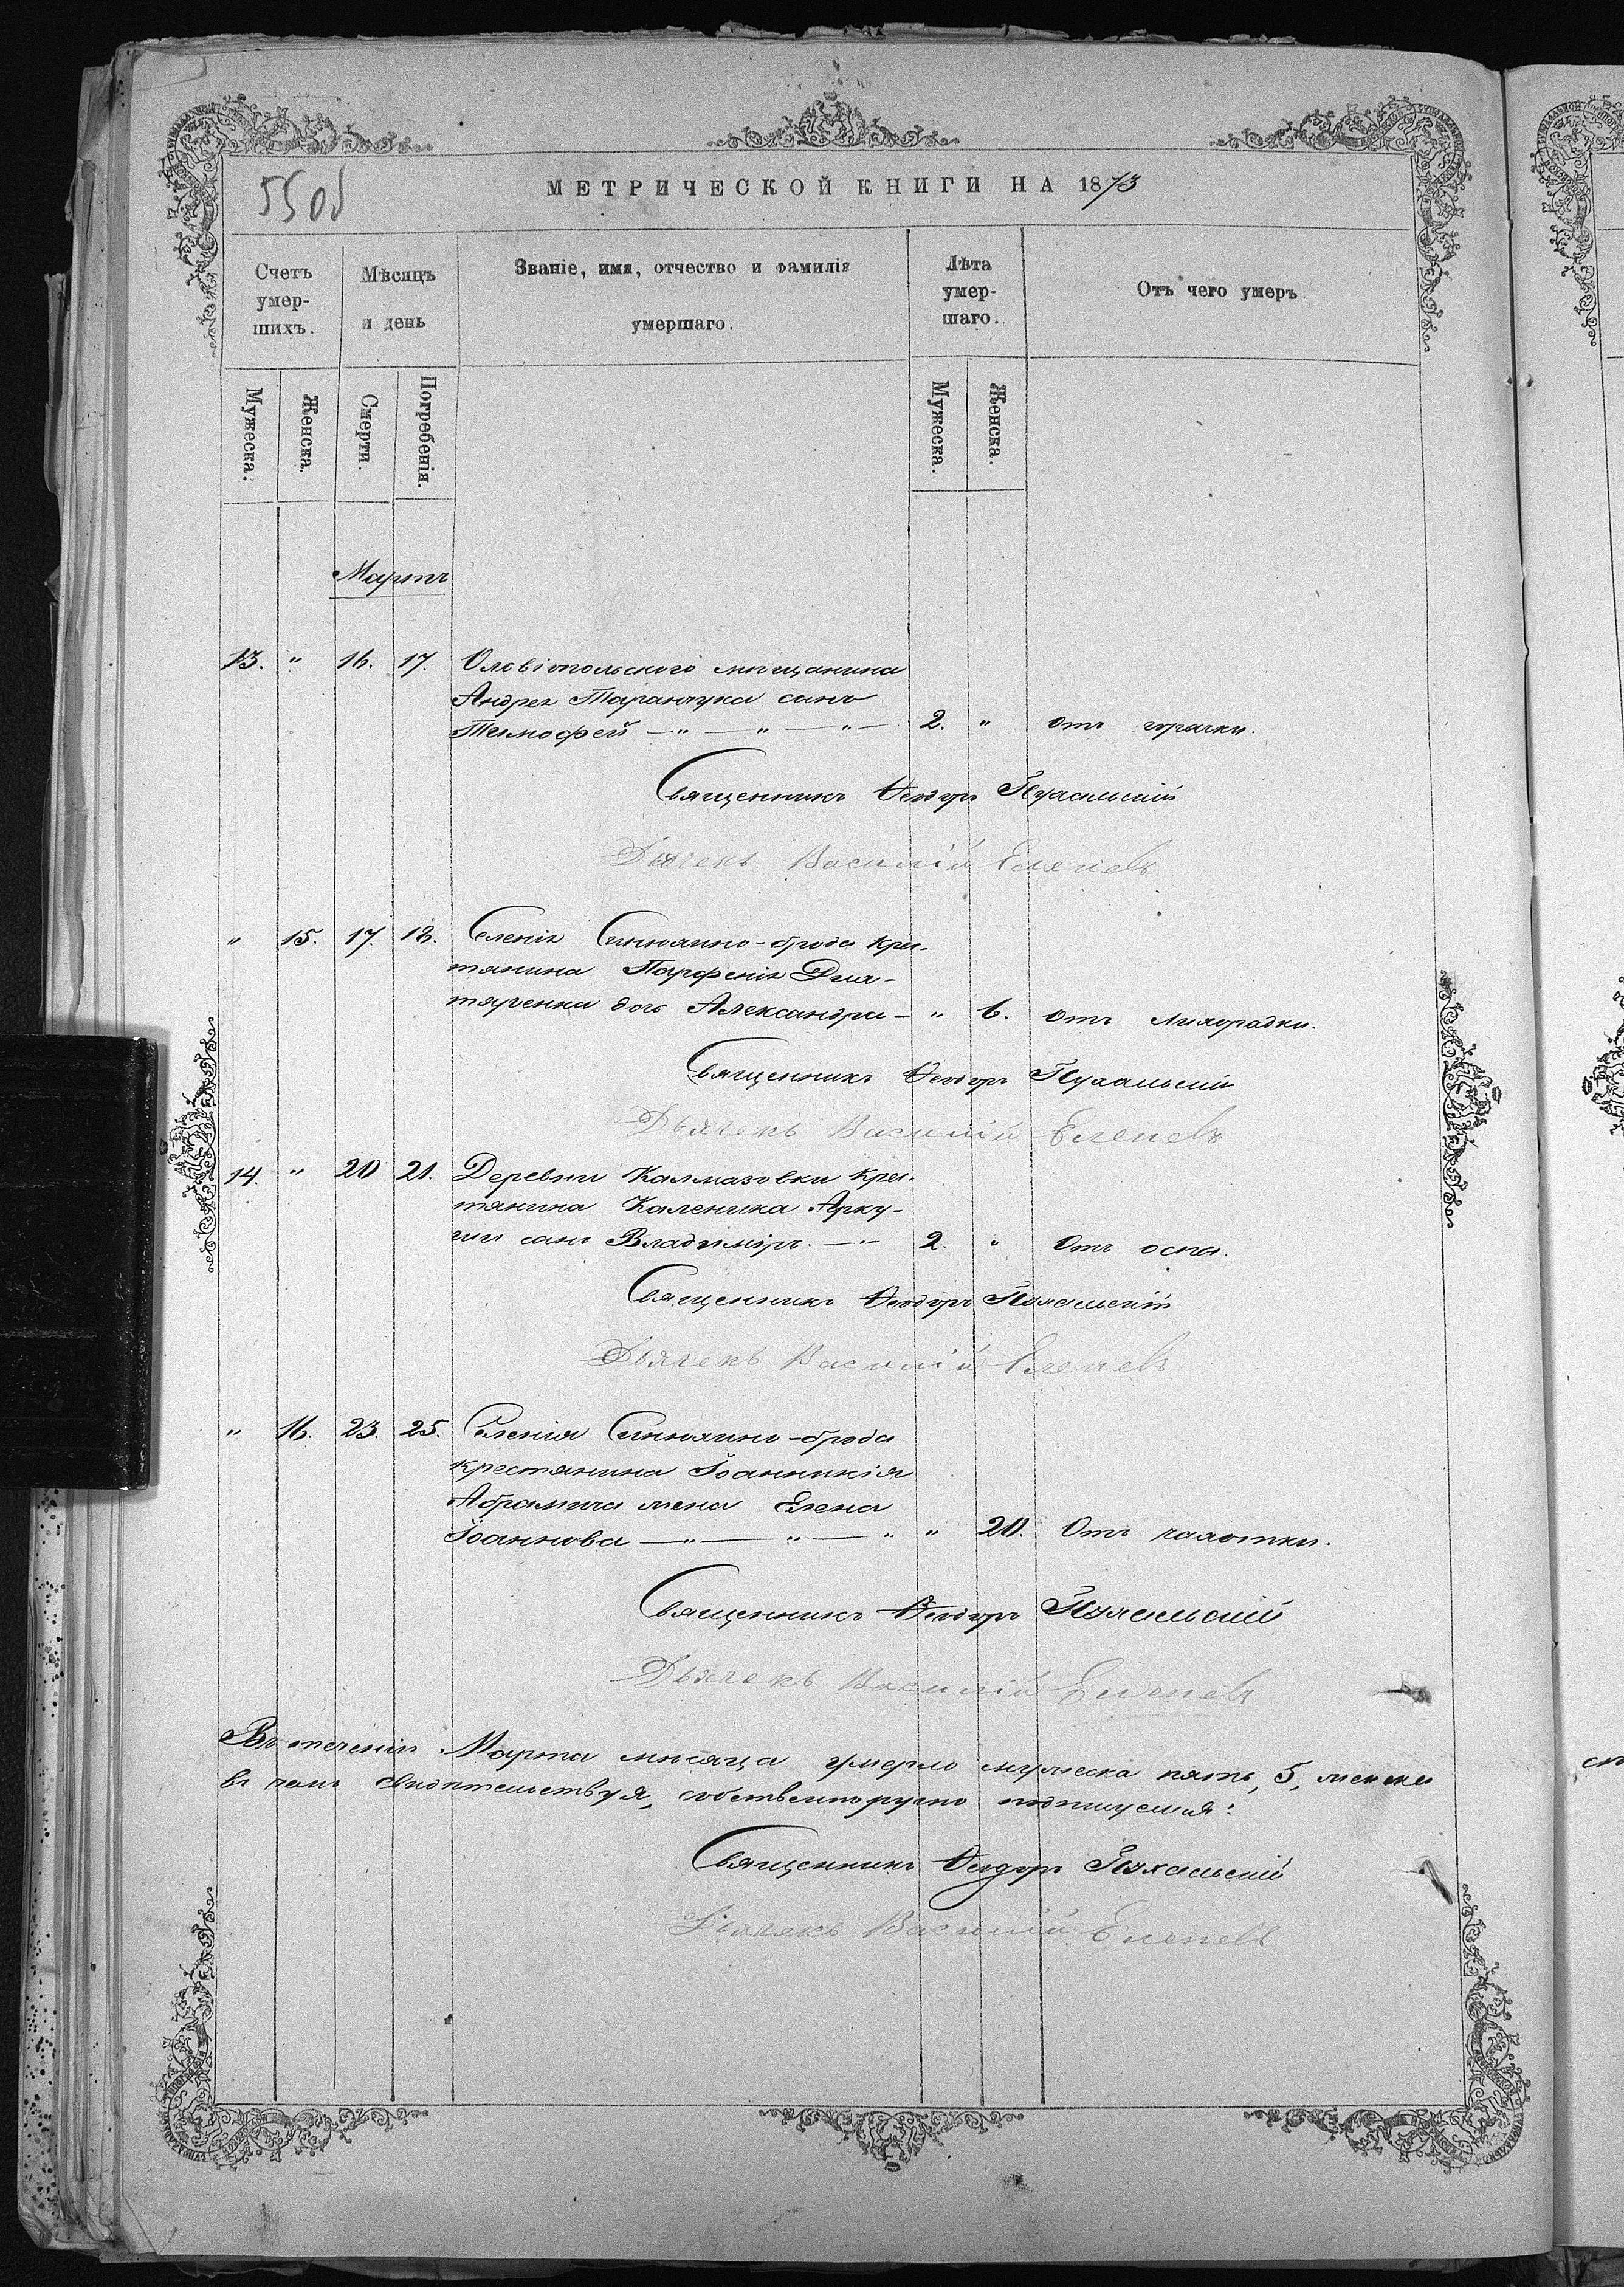 550об
МЕТРИЧЕСКОЙ КНИГИ НА 1873
Счетъ умер-шихъ.
Мѣсяцъ и день
Званіе, имя, отчество и фамилія умершаго.
Лѣта умер-шаго.
Отъ чего умеръ
Мужеска.
Женска.
Смерти.
Погребенія.
Мужеска.
Женска.
Мартъ
13. " 16. 17. Ольвіопольского мѣщанина
Андрея Таранчука сынъ
Тимофей —"—"—"— 2. " отъ горячки.
Священникъ Ѳеодоръ Пухальскій
Дьячекъ Василій Еленевъ
" 15. 17. 18. Селенія Синюхино-брода кре-
тянина Парфенія Дня-
тяренка дочь Александра — " 6. отъ лихорадки.
Священникъ Ѳеодоръ Пухальскій
Дьячекъ Василій Еленевъ
14. " 20 21. Деревни Калмазовки кре-
тянина Каленика Арку-
ши сынъ Владиміръ. —"— 2. " Отъ оспы.
Священникъ Ѳеодоръ Пухальскій
Дьячекъ Василій Еленевъ
" 16. 23. 25. Селенія Синюхино-брода
крестянина Іоанникія
Абрамича жена Елена
Іоаннова —"—"—" " 20. Отъ чахотки.
Священникъ Ѳеодоръ Пухальскій
Дьячекъ Василій Еленевъ
Въ теченіи Марта мѣсяца умерло мужеска пять, 5, женска
въ чемъ свидѣтельствуя, собственноручно подписуемся:
Священникъ Ѳеодоръ Пухальскій
Дьячекъ Василій Еленевъ